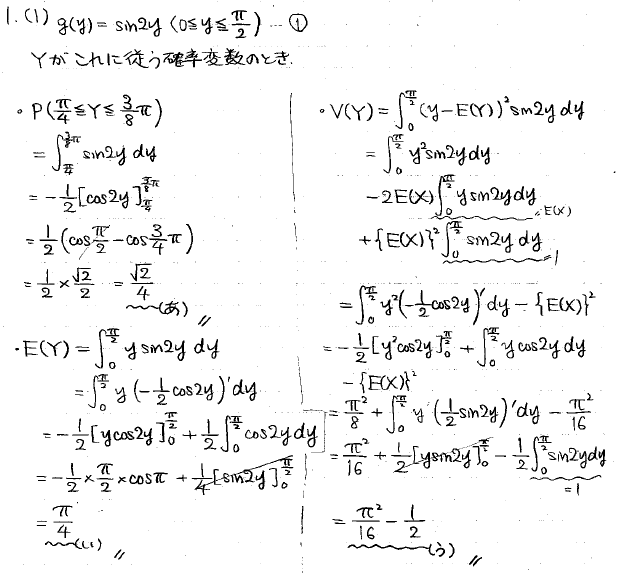 1. (1) g(y) = sin2y (0≦y≦π/2) … ①
Yがこれに従う確率変数のとき.
・P(π/4≦Y≦3/8π)
= ∫_{π/4}^{3/8π} sin2y dy
= -1/2[cos2y]_{π/4}^{3/8π}
= 1/2(cosπ/2 - cos3/4π)
= 1/2 × √2/2 = √2/4 (あ) 〃
・E(Y) = ∫_0^{π/2} y sin2y dy
= ∫_0^{π/2} y(-1/2cos2y)'dy
= -1/2[ycos2y]_0^{π/2} + 1/2∫_0^{π/2} cos2y dy
= -1/2 × π/2 × cosπ + 1/4[sin2y]_0^{π/2}
= π/4 (い) 〃
・V(Y) = ∫_0^{π/2} (y-E(Y))² sin2y dy
= ∫_0^{π/2} y² sin2y dy
-2E(X)∫_0^{π/2} y sin2y dy =E(X)
+{E(X)}² ∫_0^{π/2} sin2y dy =1
= ∫_0^{π/2} y²(-1/2cos2y)'dy - {E(X)}²
= -1/2[y²cos2y]_0^{π/2} + ∫_0^{π/2} y cos2y dy
-{E(X)}²
= π²/8 + ∫_0^{π/2} y(1/2sin2y)'dy - π²/16
= π²/16 + 1/2[ysin2y]_0^{π/2} - 1/2∫_0^{π/2} sin2y dy
=1
= π²/16 - 1/2 (う) 〃